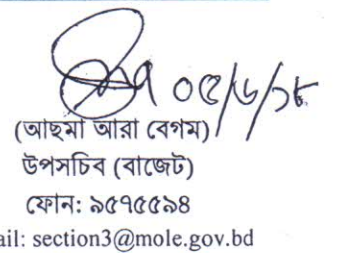 ০৫/৬/১৮
(আছমা আরা বেগম)
উপসচিব (বাজেট)
ফোন: ৯৫৭৫৫৯৪
ail: section3@mole.gov.bd